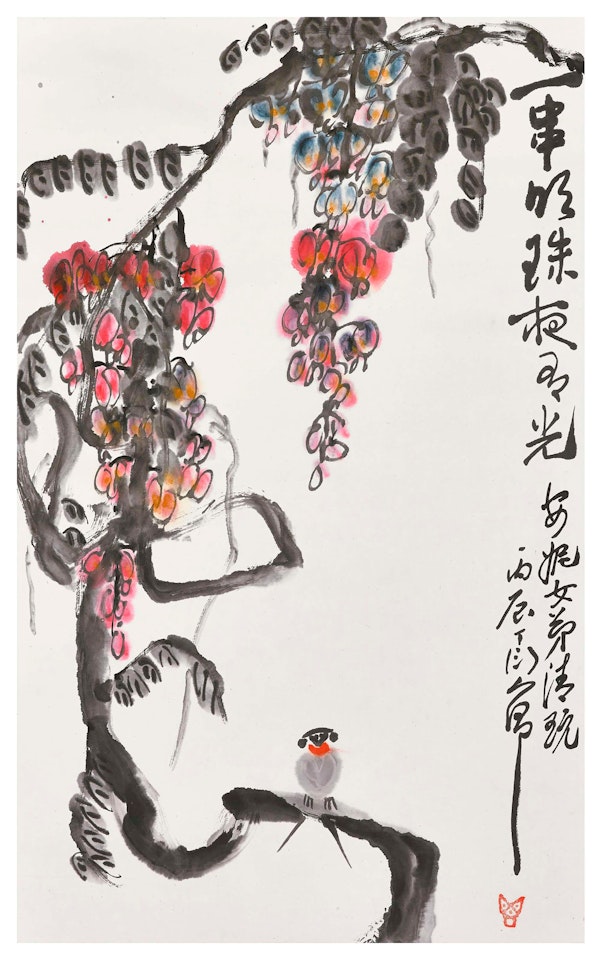 一串明珠夜有光
安娓女弟清玩
丙辰丁衍庸